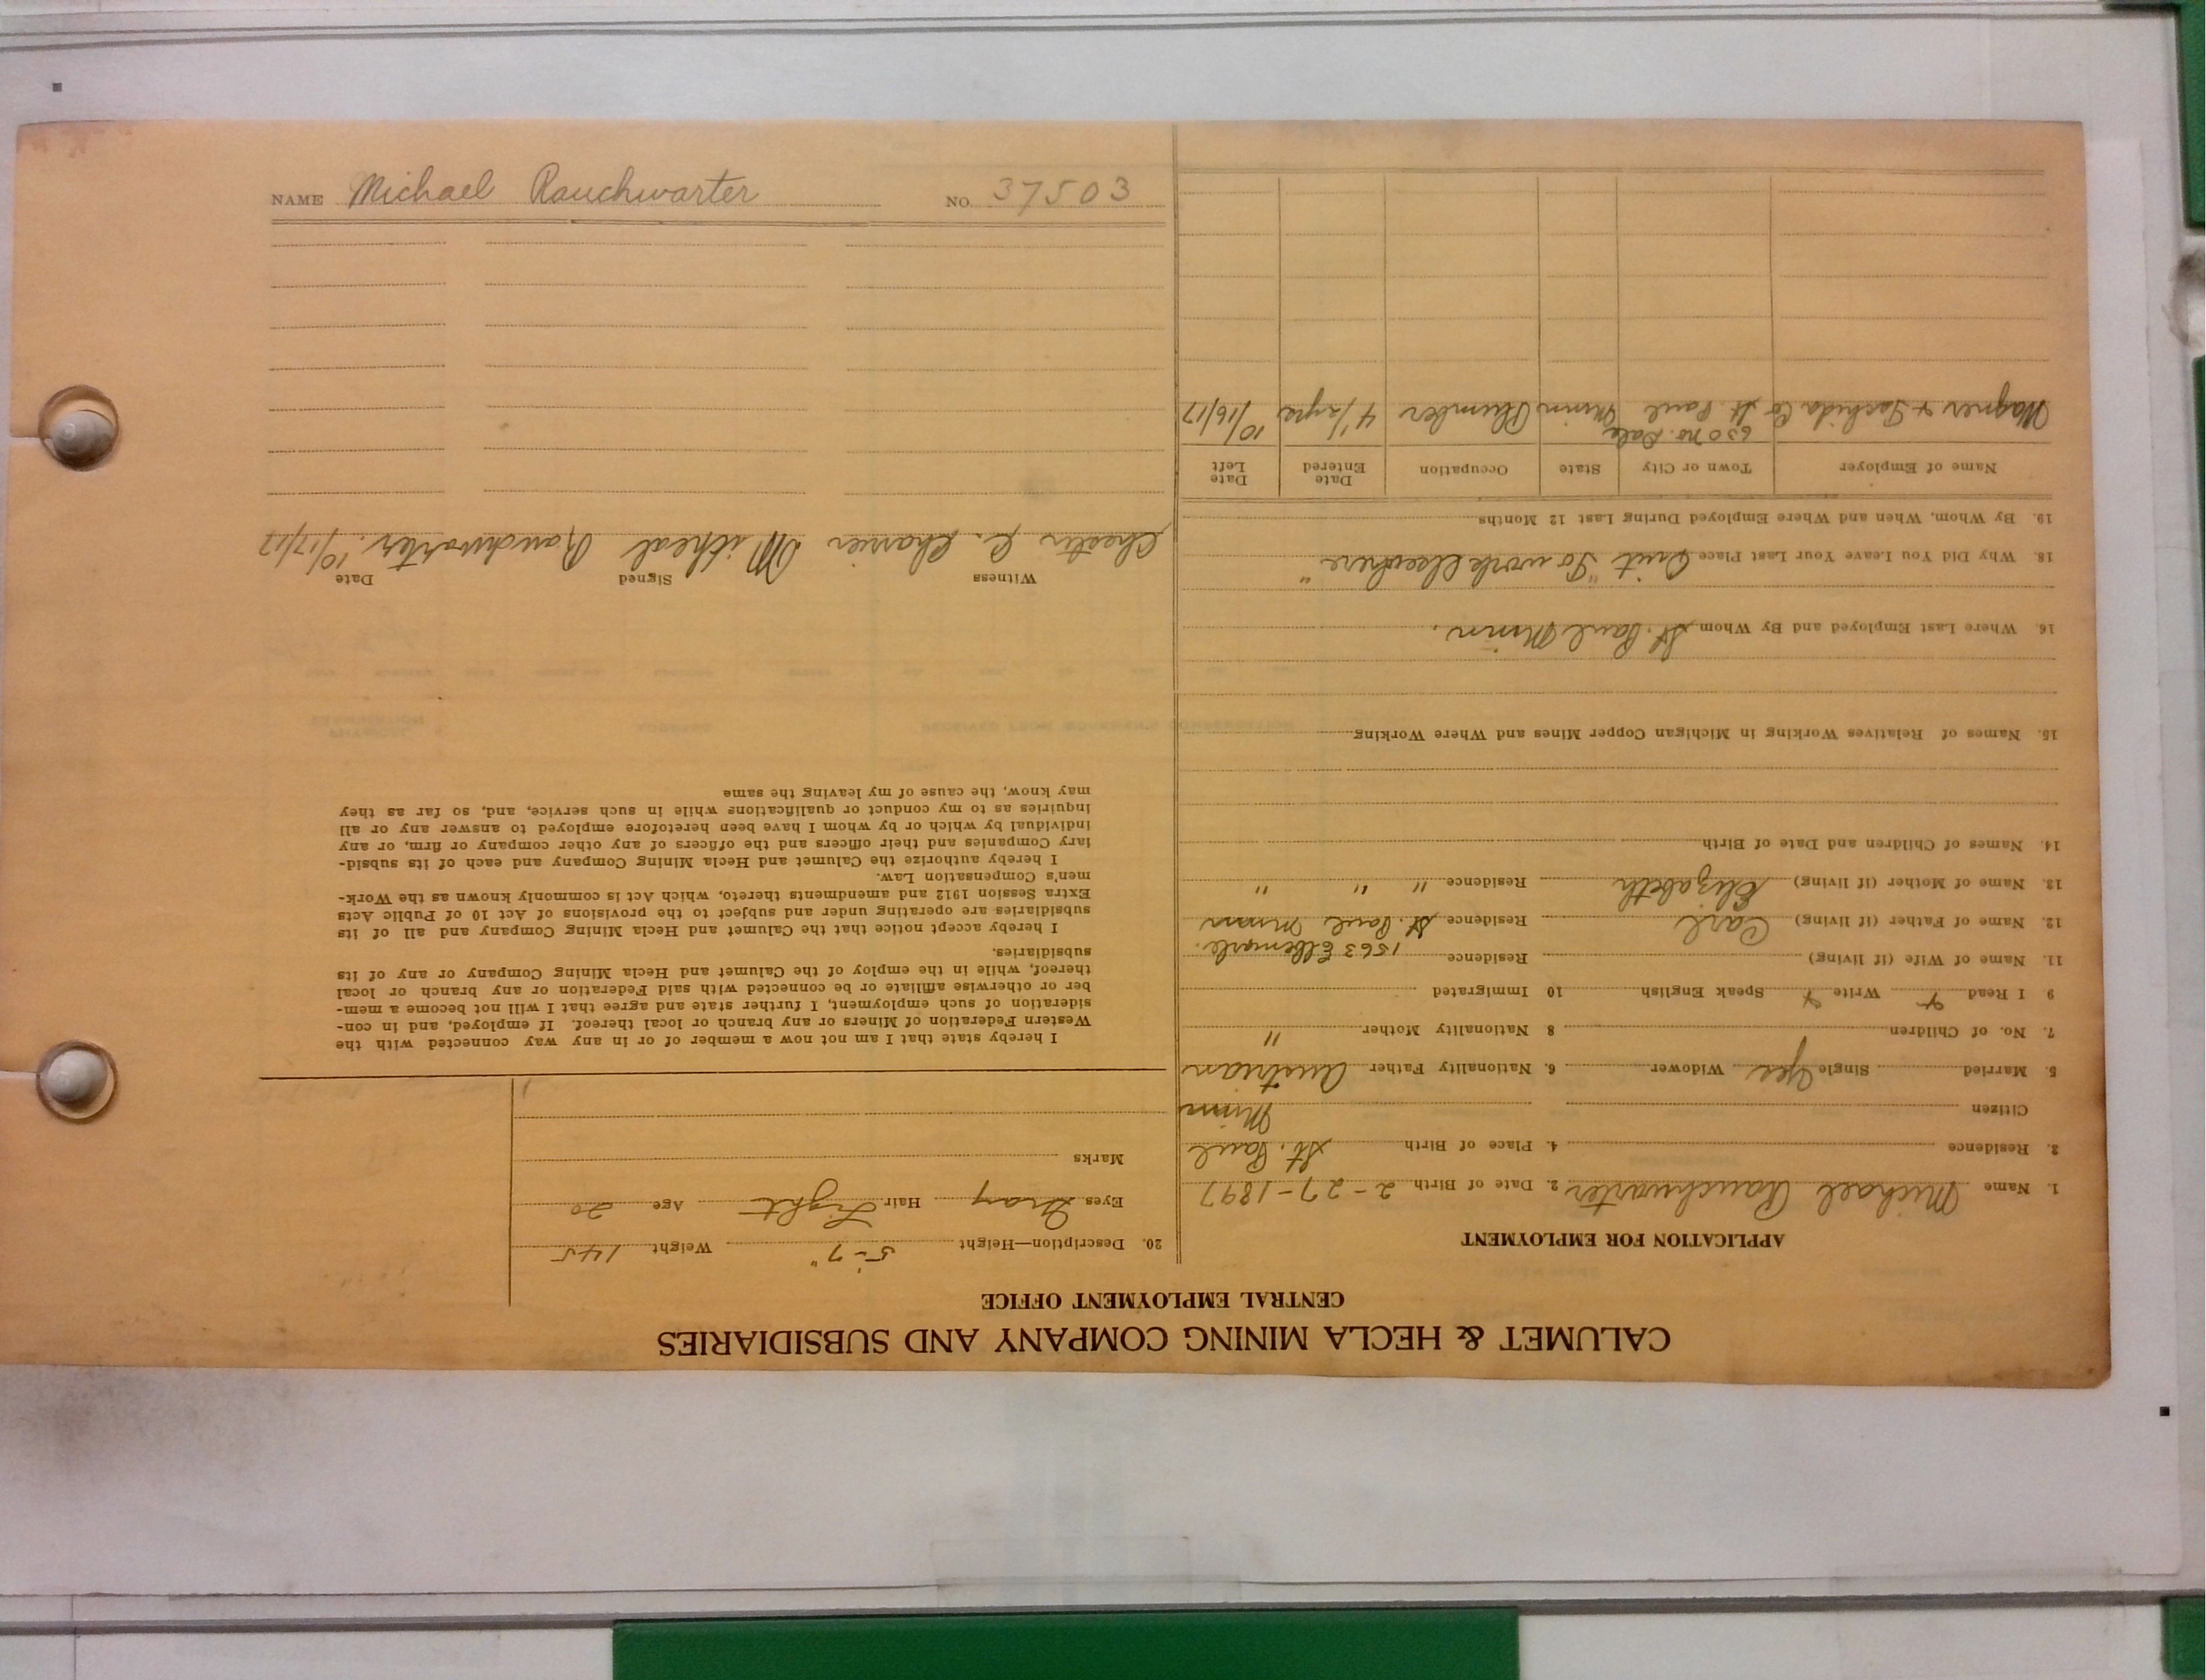 CALUMET & HECLA MINING COMPANY AND SUBSIDIARIES
CENTRAL EMPLOYMENT OFFICE
APPLICATION FOR EMPLOYMENT
1. Name Michael Rauchwarter 2. Date of Birth 2-27-1897
3. Residence 4. Place of Birth St. Paul
Citizen Minn
5. Married Single Yes Widower 6. Nationality Father Austrian
7. No. of Children 8 Nationality Mother "
9 I Read Write Speak English 10 Immigrated
11. Name of Wife (if living) Residence 1563 Elbemarle.
12. Name of Father (if living) Carl Residence St. Paul Minn
13. Name of Mother (if living) Elizabeth Residence " " "
14. Names of Children and Date of Birth
15. Names of Relatives Working in Michigan Copper Mines and Where Working
16. Where Last Employed and By Whom St. Paul Minn.
18. Why Did You Leave Your Last Place Quit "To work elsewhere"
19. By Whom, When and Where Employed During Last 12 Months
Name of Employer Town or City State Occupation Date Entered Date Left
650 No. Dale
Wagner + Co St. Paul Minn Plumber 10/16/17
20. Description—Height 5-7" Weight 145
Eyes Gray Hair Light Age 20
Marks
I hereby state that I am not now a member of or in any way connected with the
Western Federation of Miners or any branch or local thereof. If employed, and in con-
sideration of such employment, I further state and agree that I will not become a mem-
ber or otherwise affiliate or be connected with said Federation or any branch or local
thereof, while in the employ of the Calumet and Hecla Mining Company or any of its
subsidiaries.
I hereby accept notice that the Calumet and Hecla Mining Company and all of its
subsidiaries are operating under and subject to the provisions of Act 10 of Public Acts
Extra Session 1912 and amendments thereto, which Act is commonly known as the Work-
men's Compensation Law.
I hereby authorize the Calumet and Hecla Mining Company and each of its subsid-
iary Companies and their officers and the officers of any other company or firm, or any
individual by which or by whom I have been heretofore employed to answer any or all
inquiries as to my conduct or qualifications while in such service, and, so far as they
may know, the cause of my leaving the same
Witness Signed Date
Chester Mitheal Rauchwarter. 10/17/17
NAME Michael Rauchwarter NO. 37503